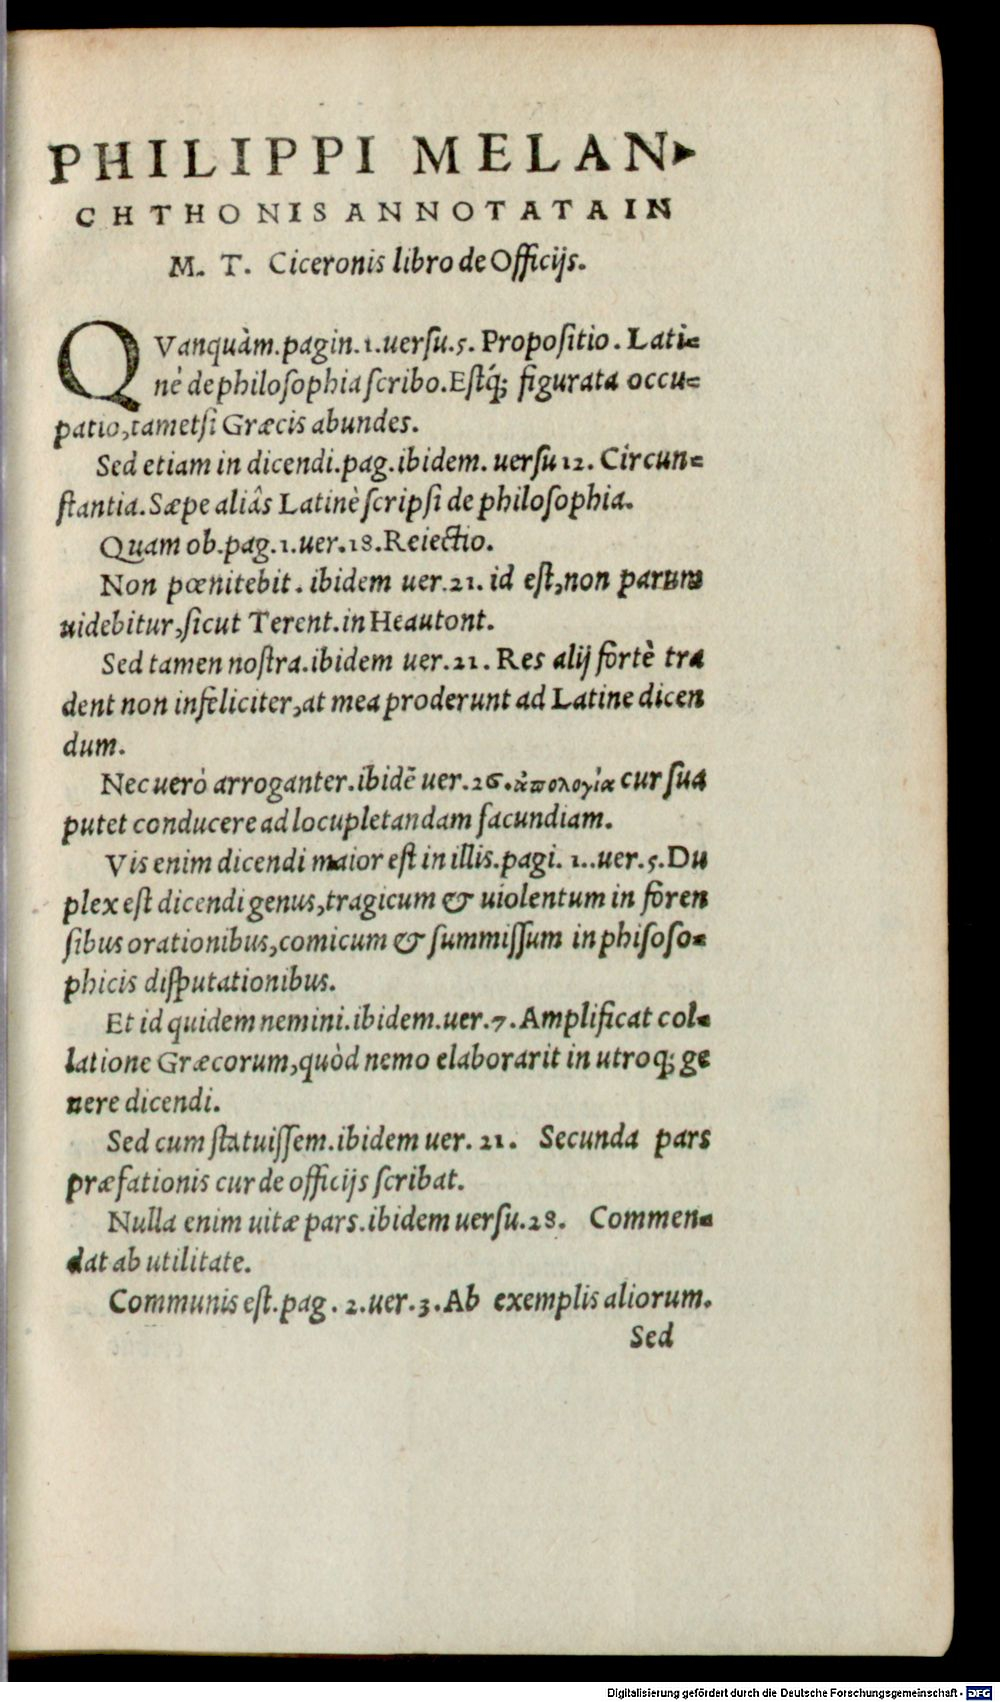 PHILIPPI MELAN-
CHTHONIS ANNOTATA IN
M. T. Ciceronis libro de Officijs.
QVanquàm.pagin.1.uersu.5. Propositio. Lati=
nè de philosophia scribo.Estq́; figurata occu=
patio,tametsi Græcis abundes.
Sed etiam in dicendi.pag.ibidem. uersu 12. Circun=
stantia.Sæpe aliâs Latinè scripsi de philosophia.
Quam ob.pag.1.uer.18.Reiectio.
Non pœnitebit. ibidem uer.21. id est,non parum
uidebitur,sicut Terent.in Heautont.
Sed tamen nostra.ibidem uer.21. Res alij fortè tra
dent non infeliciter,at mea proderunt ad Latine dicen
dum.
Nec uerò arroganter.ibidē uer.26.ἀπολογία cur sua
putet conducere ad locupletandam facundiam.
Vis enim dicendi maior est in illis.pagi. 1..uer.5.Du
plex est dicendi genus,tragicum & uiolentum in foren
sibus orationibus,comicum & summissum in phisoso=
phicis disputationibus.
Et id quidem nemini.ibidem.uer.7.Amplificat col=
latione Græcorum,quòd nemo elaborarit in utroq; ge
nere dicendi.
Sed cum statuissem.ibidem uer. 21. Secunda pars
præfationis cur de officijs scribat.
Nulla enim uitæ pars.ibidem uersu.28. Commen=
dat ab utilitate.
Communis est.pag. 2.uer.3.Ab exemplis aliorum.
Sed
Digitalisierung gefördert durch die Deutsche Forschungsgemeinschaft - DFG